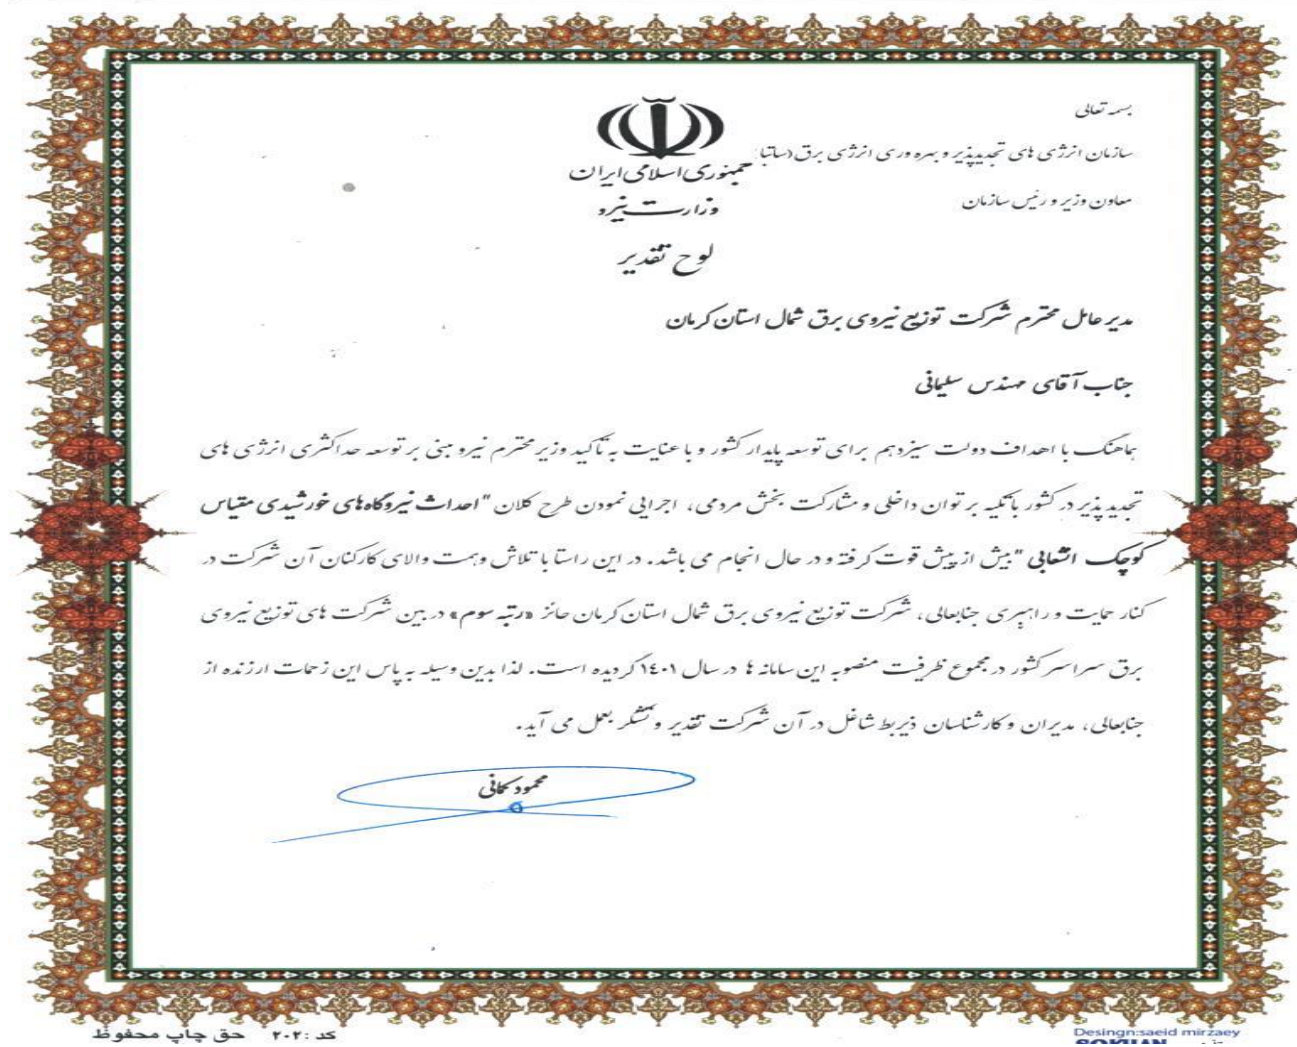 بسمه تعالی
سازمان انرژی های تجدیدپذیر و بهره وری انرژی برق (ساتبا
معاون وزیر و رئیس سازمان
جمهوری اسلامی ایران
وزارت نیرو
لوح تقدیر
مدیر عامل محترم شرکت توزیع نیروی برق شمال استان کرمان
جناب آقای مهندس سلیمانی
هماهنگ با اهداف دولت سیزدهم برای توسعه پایدار کشور و با عنایت به تأکید وزیر محترم نیرو مبنی بر توسعه حداکثری انرژی های
تجدید پذیر در کشور با تکیه بر توان داخلی و مشارکت بخش مردمی، اجرایی نمودن طرح کلان "احداث نیروگاه‌های خورشیدی مقیاس
کوچک انشعابی" بیش از پیش قوت گرفته و در حال انجام می باشد. در این راستا با تلاش وهمت والای کارکنان آن شرکت در
کنار حمایت و راهبری جنابعالی، شرکت توزیع نیروی برق شمال استان کرمان حائز «رتبه سوم» در بین شرکت های توزیع نیروی
برق سراسر کشور در مجموع ظرفیت منصوبه این سامانه ها در سال ۱۴۰۱ گردیده است. لذا بدین وسیله به پاس این زحمات ارزنده از
جنابعالی، مدیران و کارشناسان ذیربط شاغل در آن شرکت تقدیر و تشکر بعمل می آید.
محمود کمانی
کد :۲۰۲۰ حق چاپ محفوظ
Desingn:saeid mirzaey
SOKHAN